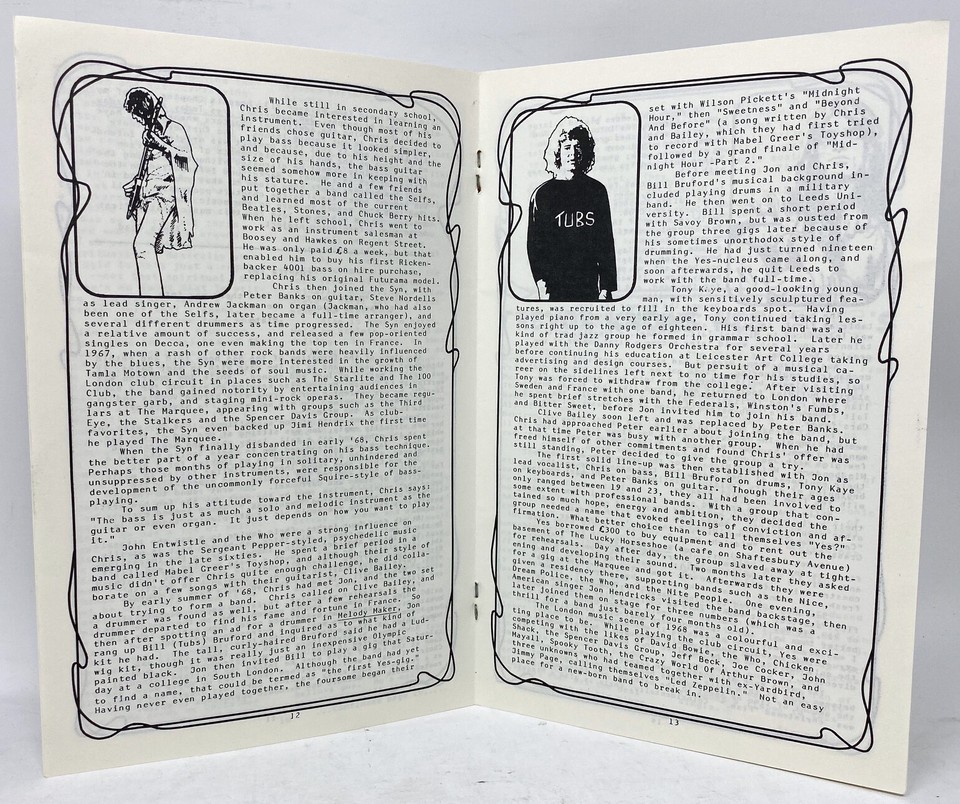 While still in secondary school,
Chris became interested in learning an
instrument. Even though most of his
friends chose guitar, Chris decided to
play bass because it looked simpler,
and because, due to his height and the
size of his hands, the bass guitar
seemed somehow more in keeping with
his stature. He and a few friends
put together a band called the Selfs,
and learned most of the current
Beatles, Stones, and Chuck Berry hits.
When he left school, Chris went to
work as an instrument salesman at
Boosey and Hawkes on Regent Street.
He was only paid £8 a week, but that
enabled him to buy his first Ricken-
backer 4001 bass on hire purchase,
replacing his original Futurama model.
Chris then joined the Syn, with
Peter Banks on guitar, Steve Nordells
as lead singer, Andrew Jackman on organ (Jackman, who had also
been one of the Selfs, later became a full-time arranger), and
several different drummers as time progressed. The Syn enjoyed
a relative amount of success, and released a few pop-oriented
singles on Decca, one even making the top ten in France. In
1967, when a rash of other rock bands were heavily influenced
by the blues, the Syn were more interested in the growth of
Tamla Motown and the seeds of soul music. While working the
London club circuit in places such as The Starlite and The 100
Club, the band gained notority by entertaining audiences in
gangster garb, and staging mini-rock operas. They became regu-
lars at The Marquee, appearing with groups such as the Third
Eye, the Stalkers and the Spencer Davis Group. As club-
favorites, the Syn even backed up Jimi Hendrix the first time
he played The Marquee.
When the Syn finally disbanded in early '68, Chris spent
the better part of a year concentrating on his bass technique.
Perhaps those months of playing in solitary, unhindered and
unsuppressed by other instruments, were responsible for the
development of the uncommonly forceful Squire-style of bass-
playing.
To sum up his attitude toward the instrument, Chris says:
"The bass is just as much a solo and melodic instrument as the
guitar or even organ. It just depends on how you want to play
it."
John Entwistle and the Who were a strong influence on
Chris, as was the Sergeant Pepper-styled, psychedelic music
emerging in the late sixties. He spent a brief period in a
band called Mabel Greer's Toyshop, and although their style of
music didn't offer Chris quite enough challenge, he did colla-
borate on a few songs with their guitarist, Clive Bailey.
By early summer of '68, Chris had met Jon, and the two set
about trying to form a band. Chris called on Clive Bailey, and
a drummer was found as well, but after a few rehearsals the
drummer departed to find his fame and fortune in France. So
then after spotting an ad for a drummer in Melody Maker, Jon
rang up Bill (Tubs) Bruford and inquired as to what kind of
kit he had. The tall, curly-haired Bruford said he had a Lud-
wig kit, though it was really just an inexpensive Olympic
painted black. Jon then invited Bill to play a gig that Satur-
day at a college in South London. Although the band had yet
to find a name, that could be termed as "the first Yes-gig."
Having never even played together, the foursome began their
12
TUBS
set with Wilson Pickett's "Midnight
Hour," then "Sweetness" and "Beyond
And Before" (a song written by Chris
and Bailey, which they had first tried
to record with Mabel Greer's Toyshop),
followed by a grand finale of "Mid-
night Hour -Part 2."
Before meeting Jon and Chris,
Bill Bruford's musical background in-
cluded playing drums in a military
band. He then went on to Leeds Uni-
versity. Bill spent a short period
with Savoy Brown, but was ousted from
the group three gigs later because of
his sometimes unorthodox style of
drumming. He had just turned nineteen
when the Yes-nucleus came along, and
soon afterwards, he quit Leeds to
work with the band full-time.
Tony Kaye, a good-looking young
man, with sensitively sculptured fea-
tures, was recruited to fill in the keyboards spot. Having
played piano from a very early age, Tony continued taking les-
sons right up to the age of eighteen. His first band was a
kind of trad jazz group he formed in grammar school. Later he
played with the Danny Rodgers Orchestra for several years
before continuing his education at Leicester Art College taking
advertising and design courses. But pursuit of a musical ca-
reer on the sidelines left next to no time for his studies, so
Tony was forced to withdraw from the college. After visiting
Sweden and France with one band, he returned to London where
he spent brief stretches with the Federals, Winston's Fumbs,
and Bitter Sweet, before Jon invited him to join his band.
Clive Bailey soon left and was replaced by Peter Banks.
Chris had approached Peter earlier about joining the band, but
at that time Peter was busy with another group. When he had
freed himself of other commitments and found Chris' offer was
still standing, Peter decided to give the group a try.
The first solid line-up was then established with Jon as
lead vocalist, Chris on bass, Bill Bruford on drums, Tony Kaye
on keyboards, and Peter Banks on guitar. Though their ages
only ranged between 19 and 23, they all had been involved to
some extent with professional bands. With a group that con-
tained so much hope, energy and ambition, they decided the
group needed a name that evoked feelings of conviction and af-
firmation. What better choice than to call themselves "Yes?"
Yes borrowed £300 to buy equipment and to rent out the
basement of The Lucky Horseshoe (a cafe on Shaftesbury Avenue)
for rehearsals. Day after day, the group slaved away at tight-
ening and developing their sound. Two months later they asked
for a gig at the Marquee and got it. Afterwards they were
given a residency there, supporting bands such as the Nice,
Dream Police, the Who, and the Nite People. One evening,
American singer Jon Hendricks visited the band backstage, then
later joined them on stage for three numbers (which was a
thrill for a band just barely four months old).
The London music scene of 1968 was a colourful, and exci-
ting place to be. While playing the club circuit, Yes were
competing with the likes of David Bowie, the Who, Chicken
Shack, the Spencer Davis Group, Jeff Beck, Joe Cocker, John
Mayall, Spooky Tooth, the Crazy World Of Arthur Brown, and
three unknowns who had teamed together with ex-Yardbird,
Jimmy Page, calling themselves "Led Zeppelin." Not an easy
place for a new-born band to break in.
13